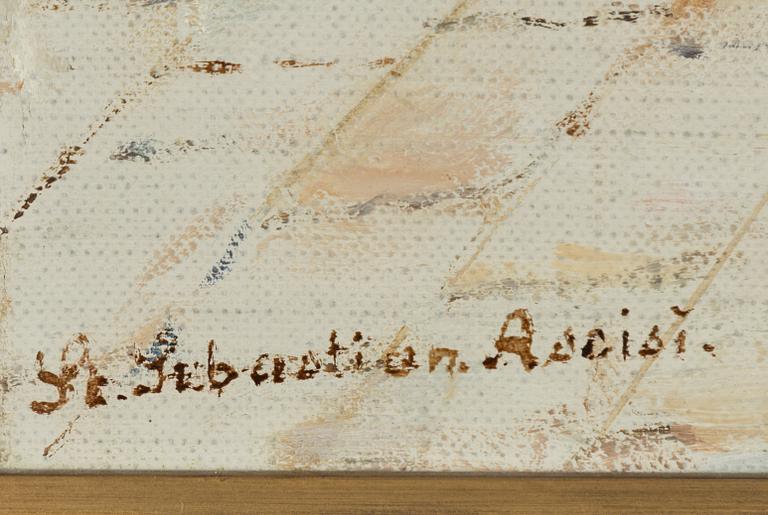 St. Sebastian. Assisi.